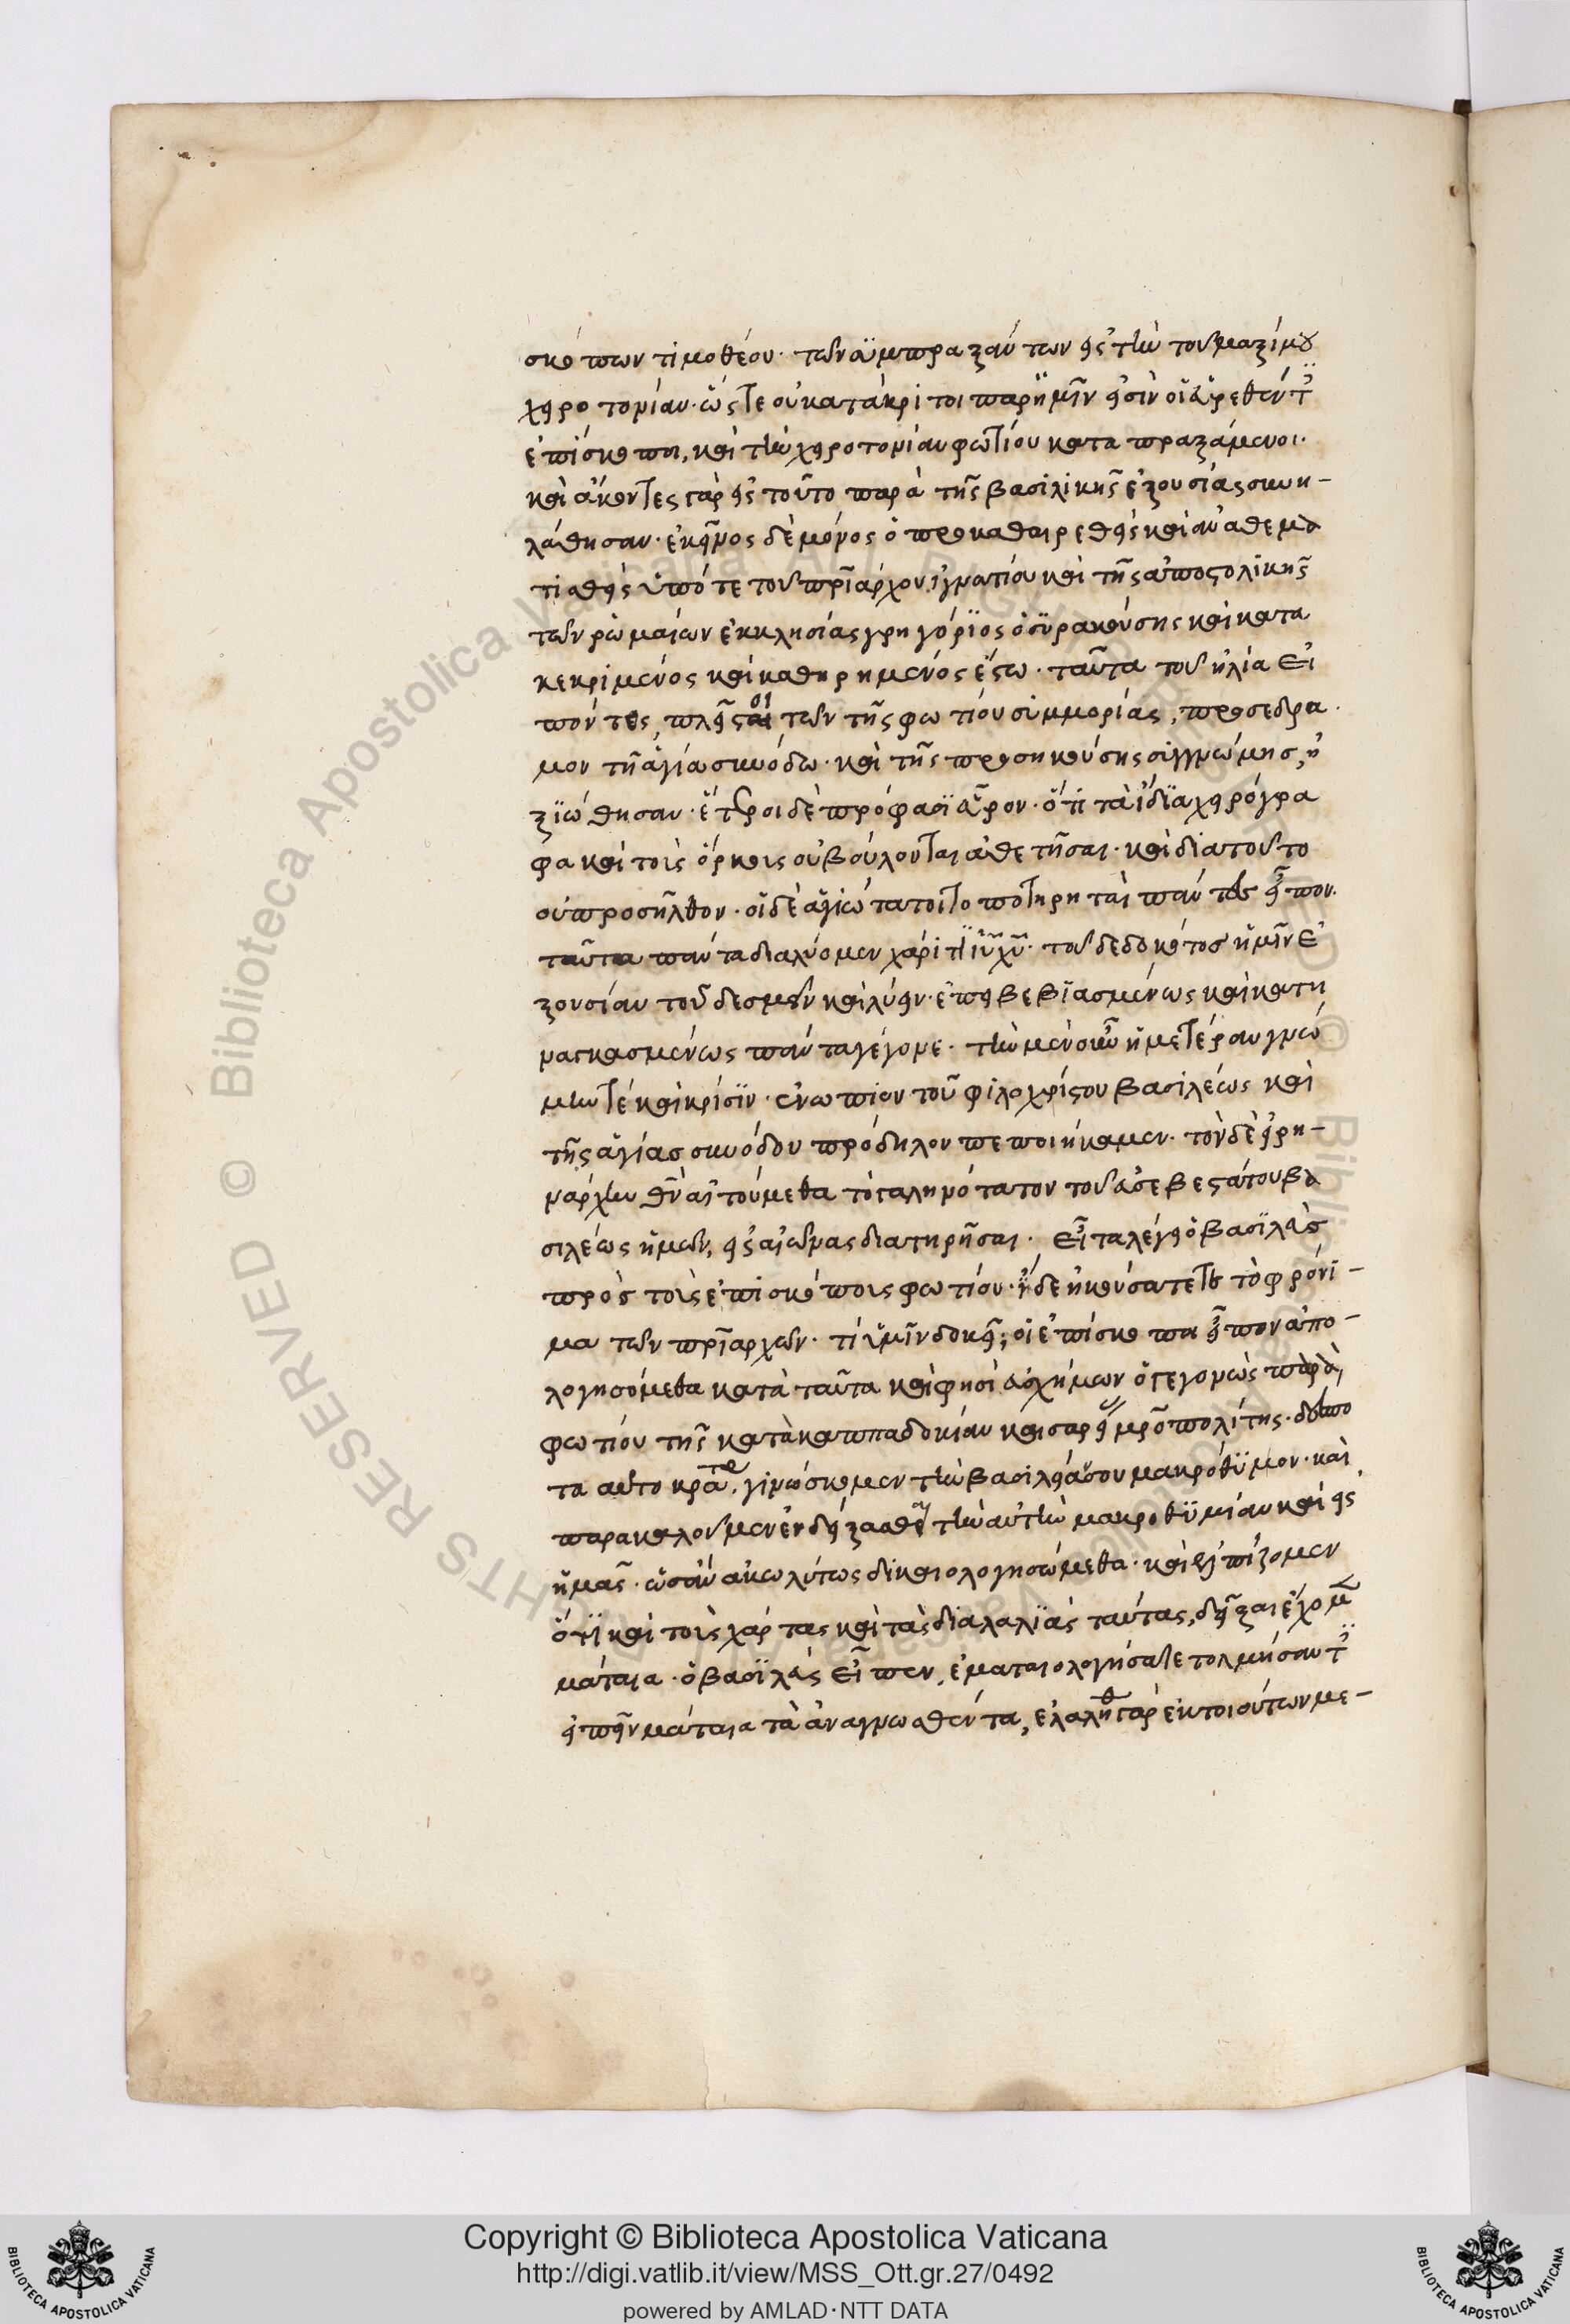 σκόπων τιμοθέου· τῶν συμπραξάντων εἰς τὴν τοῦ μαξίμου
χειροτονίαν· ὥστε οὐ κατάκριτοι παρ' ἡμῖν εἰσὶν οἱ εὑρεθέντες
ἐπίσκοποι, καὶ τὴν χειροτονίαν φωτίου καταπραξάμενοι·
καὶ ἄκοντες γὰρ εἰς τοῦτο παρὰ τῆς βασιλικῆς ἐξουσίας συνη-
λάθησαν· ἐκεῖνος δὲ μόνος ὁ προκαθαιρεθεὶς καὶ ἀναθεμα
τισθεὶς ὑπό τε τοῦ πριάρχου ἰγνατίου καὶ τῆς ἀποστολικῆς
τῶν ῥωμαίων ἐκκλησίας γρηγόριος ὁ συρακούσης καὶ κατα
κεκριμένος καὶ καθηρημένος ἔστω· ταῦτα τοῦ ἡλία εἰ
πόντος, πλεῖστοι τῶν τῆς φωτίου συμμορίας, προσέδρα
μον τῆ ἁγία συνόδω· καὶ τῆς προσηκούσης συγγνώμης, ἠ
ξιώθησαν· ἕτεροι δὲ πρόφασιν εὗρον· ὅτι τὰ ἴδια χειρόγρα
φα καὶ τοὺς ὅρκους οὐ βούλονται ἀθετῆσαι· καὶ διατοῦτο
οὐ προσῆλθον· οἱ δὲ ἁγιώτατοι τοποτηρηταὶ πάντες εἶπον·
ταῦτα πάντα διαλύομεν χάριτι ἰῦ χῦ· τοῦ δεδοκότος ἡμῖν ἐ
ξουσίαν τοῦ δεσμεῖν καὶ λύειν· ἐπεὶ βεβιασμένως καὶ κατη
ναγκασμένως πάντα γέγονε· τὴν μὲν οὖν ἡμετέραν γνώ
μην τὲ καὶ κρίσιν· ἐνώπιον τοῦ φιλοχρίστου βασιλέως καὶ
τῆς ἁγίας συνόδου πρόδηλον πεποιήκαμεν· τὸν δὲ εἰρη-
νάρχην θν αἰτούμεθα τὸ γαληνότατον τοῦ εὐσεβεστάτου βα
σιλέως ἡμῶν, εἰς αἰῶνας διατηρῆσαι· Εἶτα λέγει ὁ βασιλεὺς
πρὸς τοὺς ἐπισκόπους φωτίου· ἤδε ἠκούσατε τὸ φρόνι-
μα τῶν πριαρχῶν· τί ὑμῖν δοκεῖ; οἱ ἐπίσκοποι εἶπον ἀπο-
λογησόμεθα κατὰ ταῦτα καὶ φησὶ εὐσχήμων ὁ γεγονὼς παρὰ
φωτίου τῆς κατὰ καππαδοκίαν καισαρείας μροπολίτης· δέσπο
τα αὐτοκράτορ, γινώσκομεν τὴν βασιλείαν σου μακρόθυμον· καὶ
παρακαλοῦμεν ἐνδείξασθαι τὴν αὐτὴν μακροθυμίαν καὶ εἰς
ἡμᾶς· ὡσὰν ἀκωλύτως δικαιολογησώμεθα· καὶ ἐλπίζομεν
ὅτι καὶ τοὺς χάρτας καὶ τὰς διαλαλιὰς ταύτας, δεῖξαι ἔχομεν
μάταια· ὁ βασιλεὺς εἶπεν, ἐματαιολογήσατε τολμήσαντες
εἰπεῖν μάταια τὰ ἀναγνωσθέντα, ἐλαλήθ γὰρ ἐκ τοιούτων με-
Copyright © Biblioteca Apostolica Vaticana
http://digi.vatlib.it/view/MSS_Ott.gr.27/0492
powered by AMLAD·NTT DATA